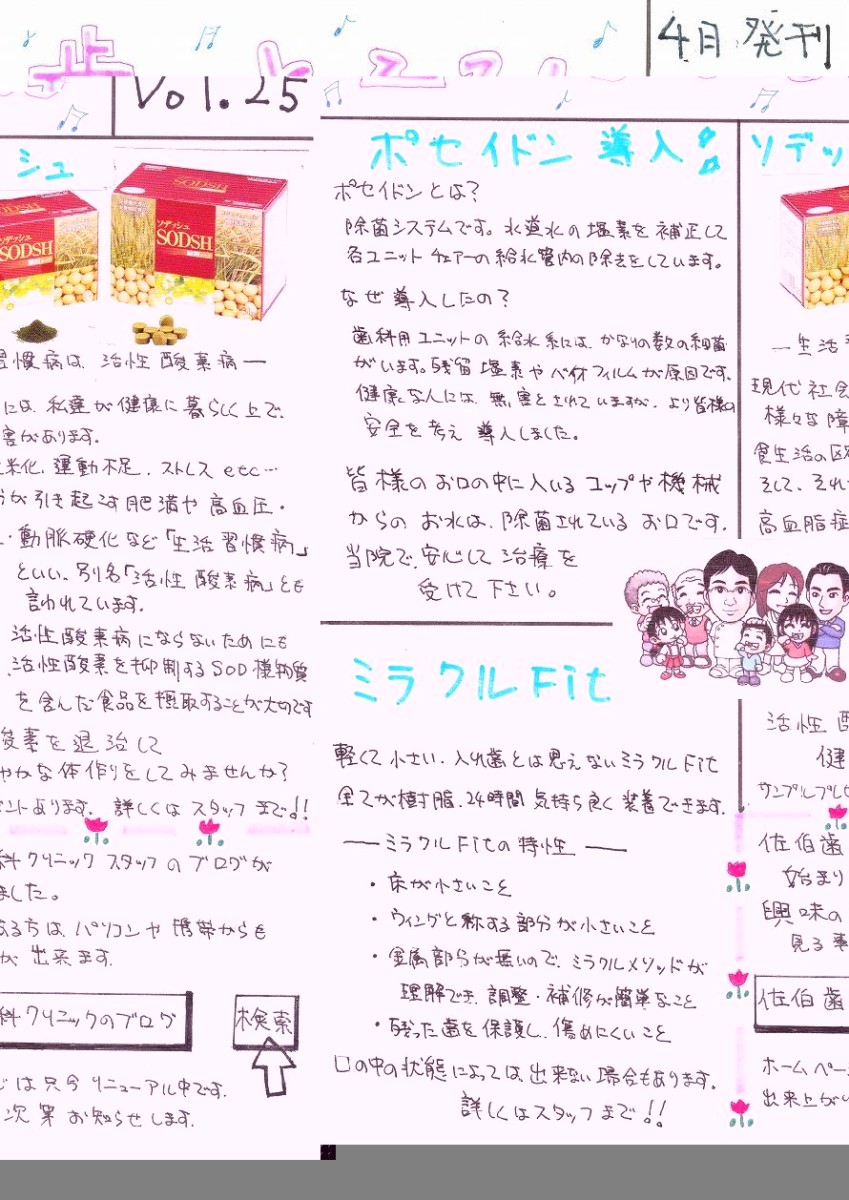 4月発刊
Vol.25
シュ
ソデッシュ
SODSH
ソデッシュ
SODSH
習慣病は、活性酸素病ー
には、私達が健康に暮らしく上で、
害があります。
米化、運動不足、ストレス etc…
が引き起こす肥満や高血圧・
・動脈硬化など「生活習慣病」
といい、別名「活性酸素病」とも
言われています。
活性酸素病にならないためにも
、活性酸素を抑制するSOD様物質
を含んだ食品を摂取することが大切です
酸素を退治して
やかな体作りをしてみませんか?
ントあります。詳しくはスタッフまで!!
科クリニックスタッフのブログが
ました。
ある方は、パソコンや携帯からも
が出来ます。
科クリニックのブログ
検索
じは只今リニューアル中です。
次第お知らせします。
ポセイドン導入
ポセイドンとは?
除菌システムです。水道水の塩素を補正して
各ユニットチェアーの給水管内の除去をしています。
なぜ導入したの?
歯科用ユニットの給水系には、かなりの数の細菌
がいます。残留塩素やバイオフィルムが原因です。
健康な人には、無害とされていますが、より皆様の
安全を考え導入しました。
皆様のお口の中に入いるコップや機械
からのお水は、除菌されているお口です。
当院で、安心して治療を
受けて下さい。
ミラクルFit
軽くて小さい、入れ歯とは思えないミラクルFit
全てが樹脂、24時間気持ち良く装着できます。
ーミラクルFitの特性ー
・床が小さいこと
・ウィングと称する部分が小さいこと
・金属部分が無いので、ミラクルメソッドが
理解でき、調整・補修が簡単なこと
・残った歯を保護し、傷めにくいこと
口の中の状態によっては、出来ない場合もあります。
詳しくはスタッフまで!!
ソデッ
ー生活
現代社会
様々な障
食生活の欧
そして、それ
高血脂症
活性酸
健
サンプルプレゼ
佐伯歯
始まり
興味の
見る事
佐伯歯
ホームペー
出来上がい